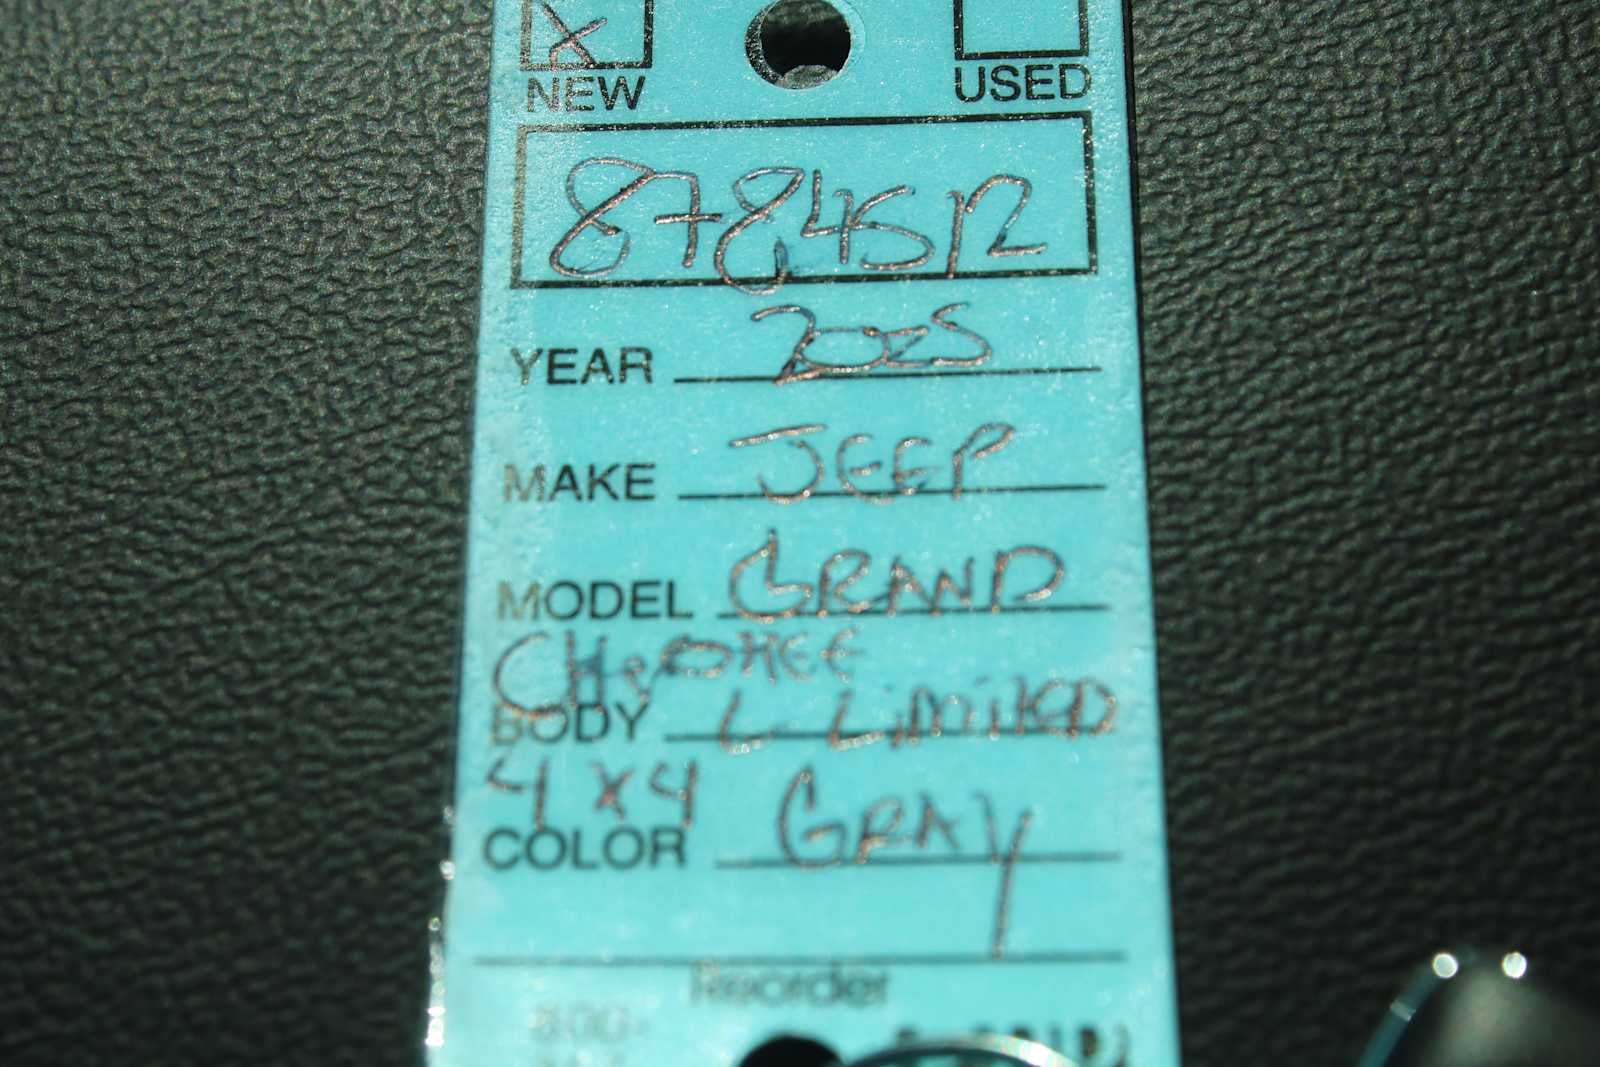 X
NEW USED
8784512
YEAR 2025
MAKE JEEP
MODEL GRAND
CHEROKEE
BODY L LIMITED
4X4
COLOR GRAY
Reorder